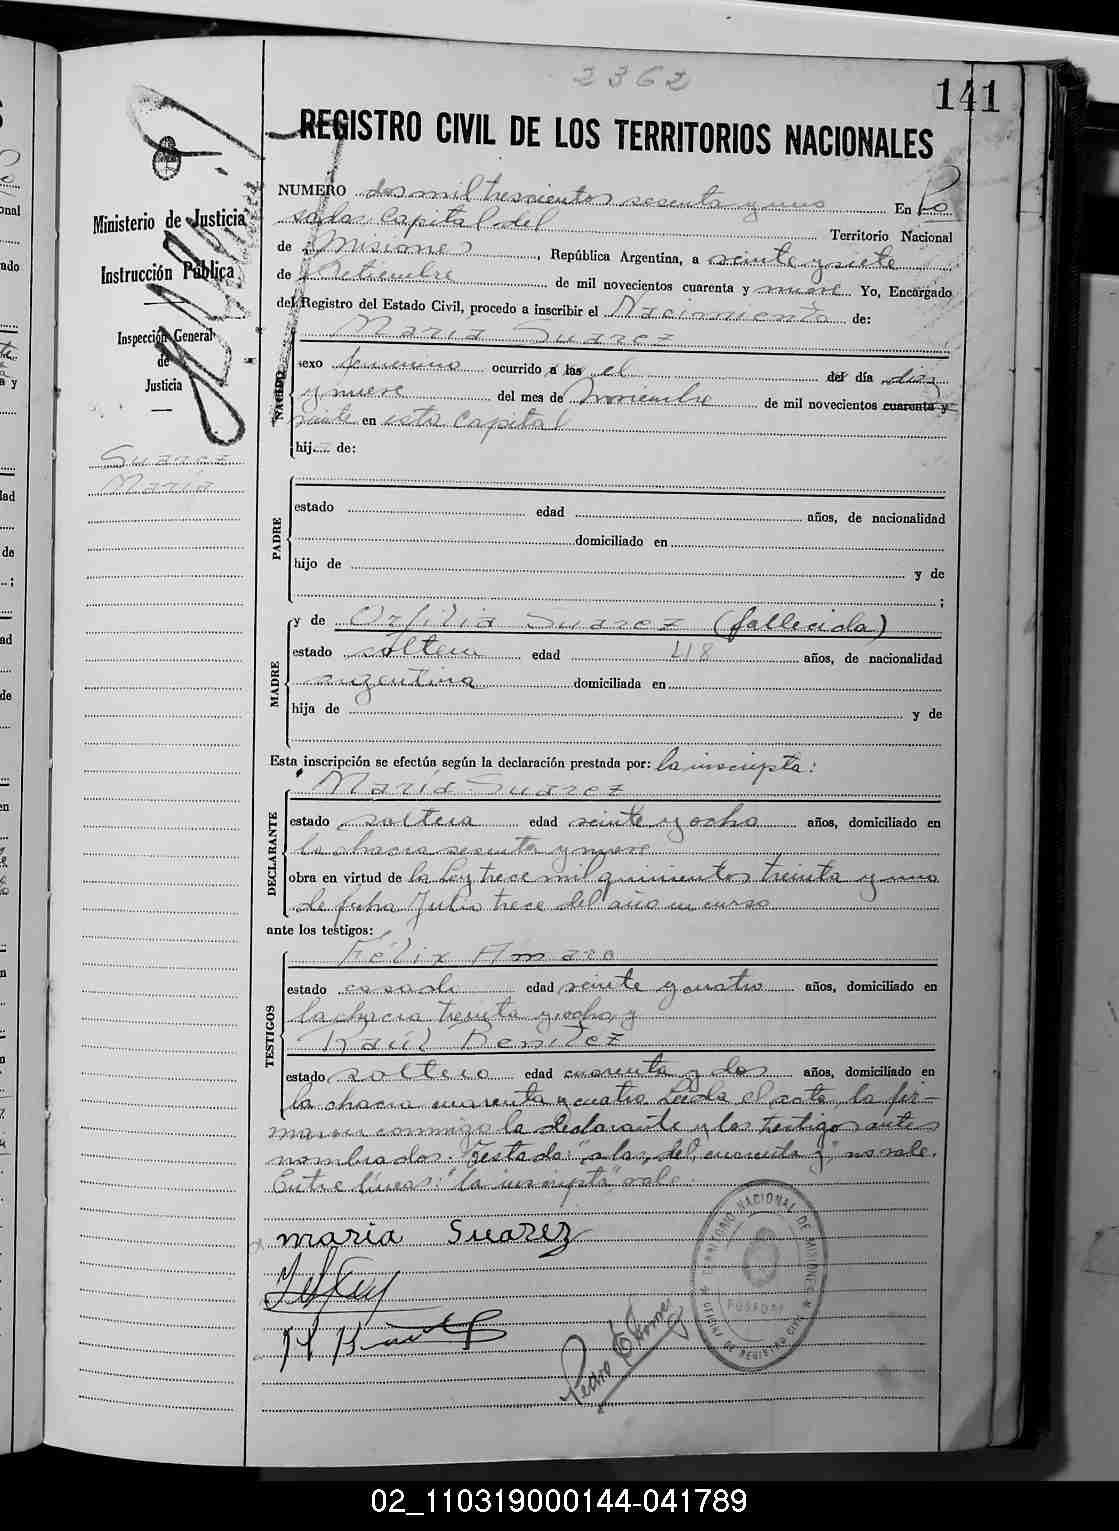 2362
141
REGISTRO CIVIL DE LOS TERRITORIOS NACIONALES
Ministerio de Justicia
Instrucción Pública
Inspección General
de
Justicia
Suarez
María
NUMERO dos mil trescientos sesenta y uno En Po
sadas Capital del Territorio Nacional
de Misiones, República Argentina, a veinte y siete
de Setiembre de mil novecientos cuarenta y nueve Yo, Encargado
del Registro del Estado Civil, procedo a inscribir el Nacimiento de:
María Suarez
NACIDO
sexo femenino ocurrido a las el del día diez
y nueve del mes de Noviembre de mil novecientos cuarenta y
veinte en esta Capital
hij de:
PADRE
estado edad años, de nacionalidad
domiciliado en
hijo de y de
;
MADRE
y de Orfilia Suarez (fallecida)
estado soltera edad 48 años, de nacionalidad
argentina domiciliada en
hija de y de
Esta inscripción se efectúa según la declaración prestada por: la inscripta:
María Suarez
DECLARANTE
estado soltera edad veinte y ocho años, domiciliado en
la chacra sesenta y nueve
obra en virtud de la Ley trece mil quinientos treinta y uno
de fecha Julio trece del año en curso
ante los testigos:
Félix Amaro
TESTIGOS
estado casado edad veinte y cuatro años, domiciliado en
la chacra treinta y ocho y
Raúl Benitez
estado soltero edad cuarenta y dos años, domiciliado en
la chacra cuarenta y cuatro Leida el acta, la fir-
maron conmigo la declarante y los testigos antes
nombrados. Testado: "a las, del, cuarenta y", no vale.
Entre líneas: "la inscripta", vale.
maria Suarez
TERRITORIO NACIONAL DE MISIONES
POSADAS
OFICINA DE REGISTRO CIVIL
02_110319000144-041789